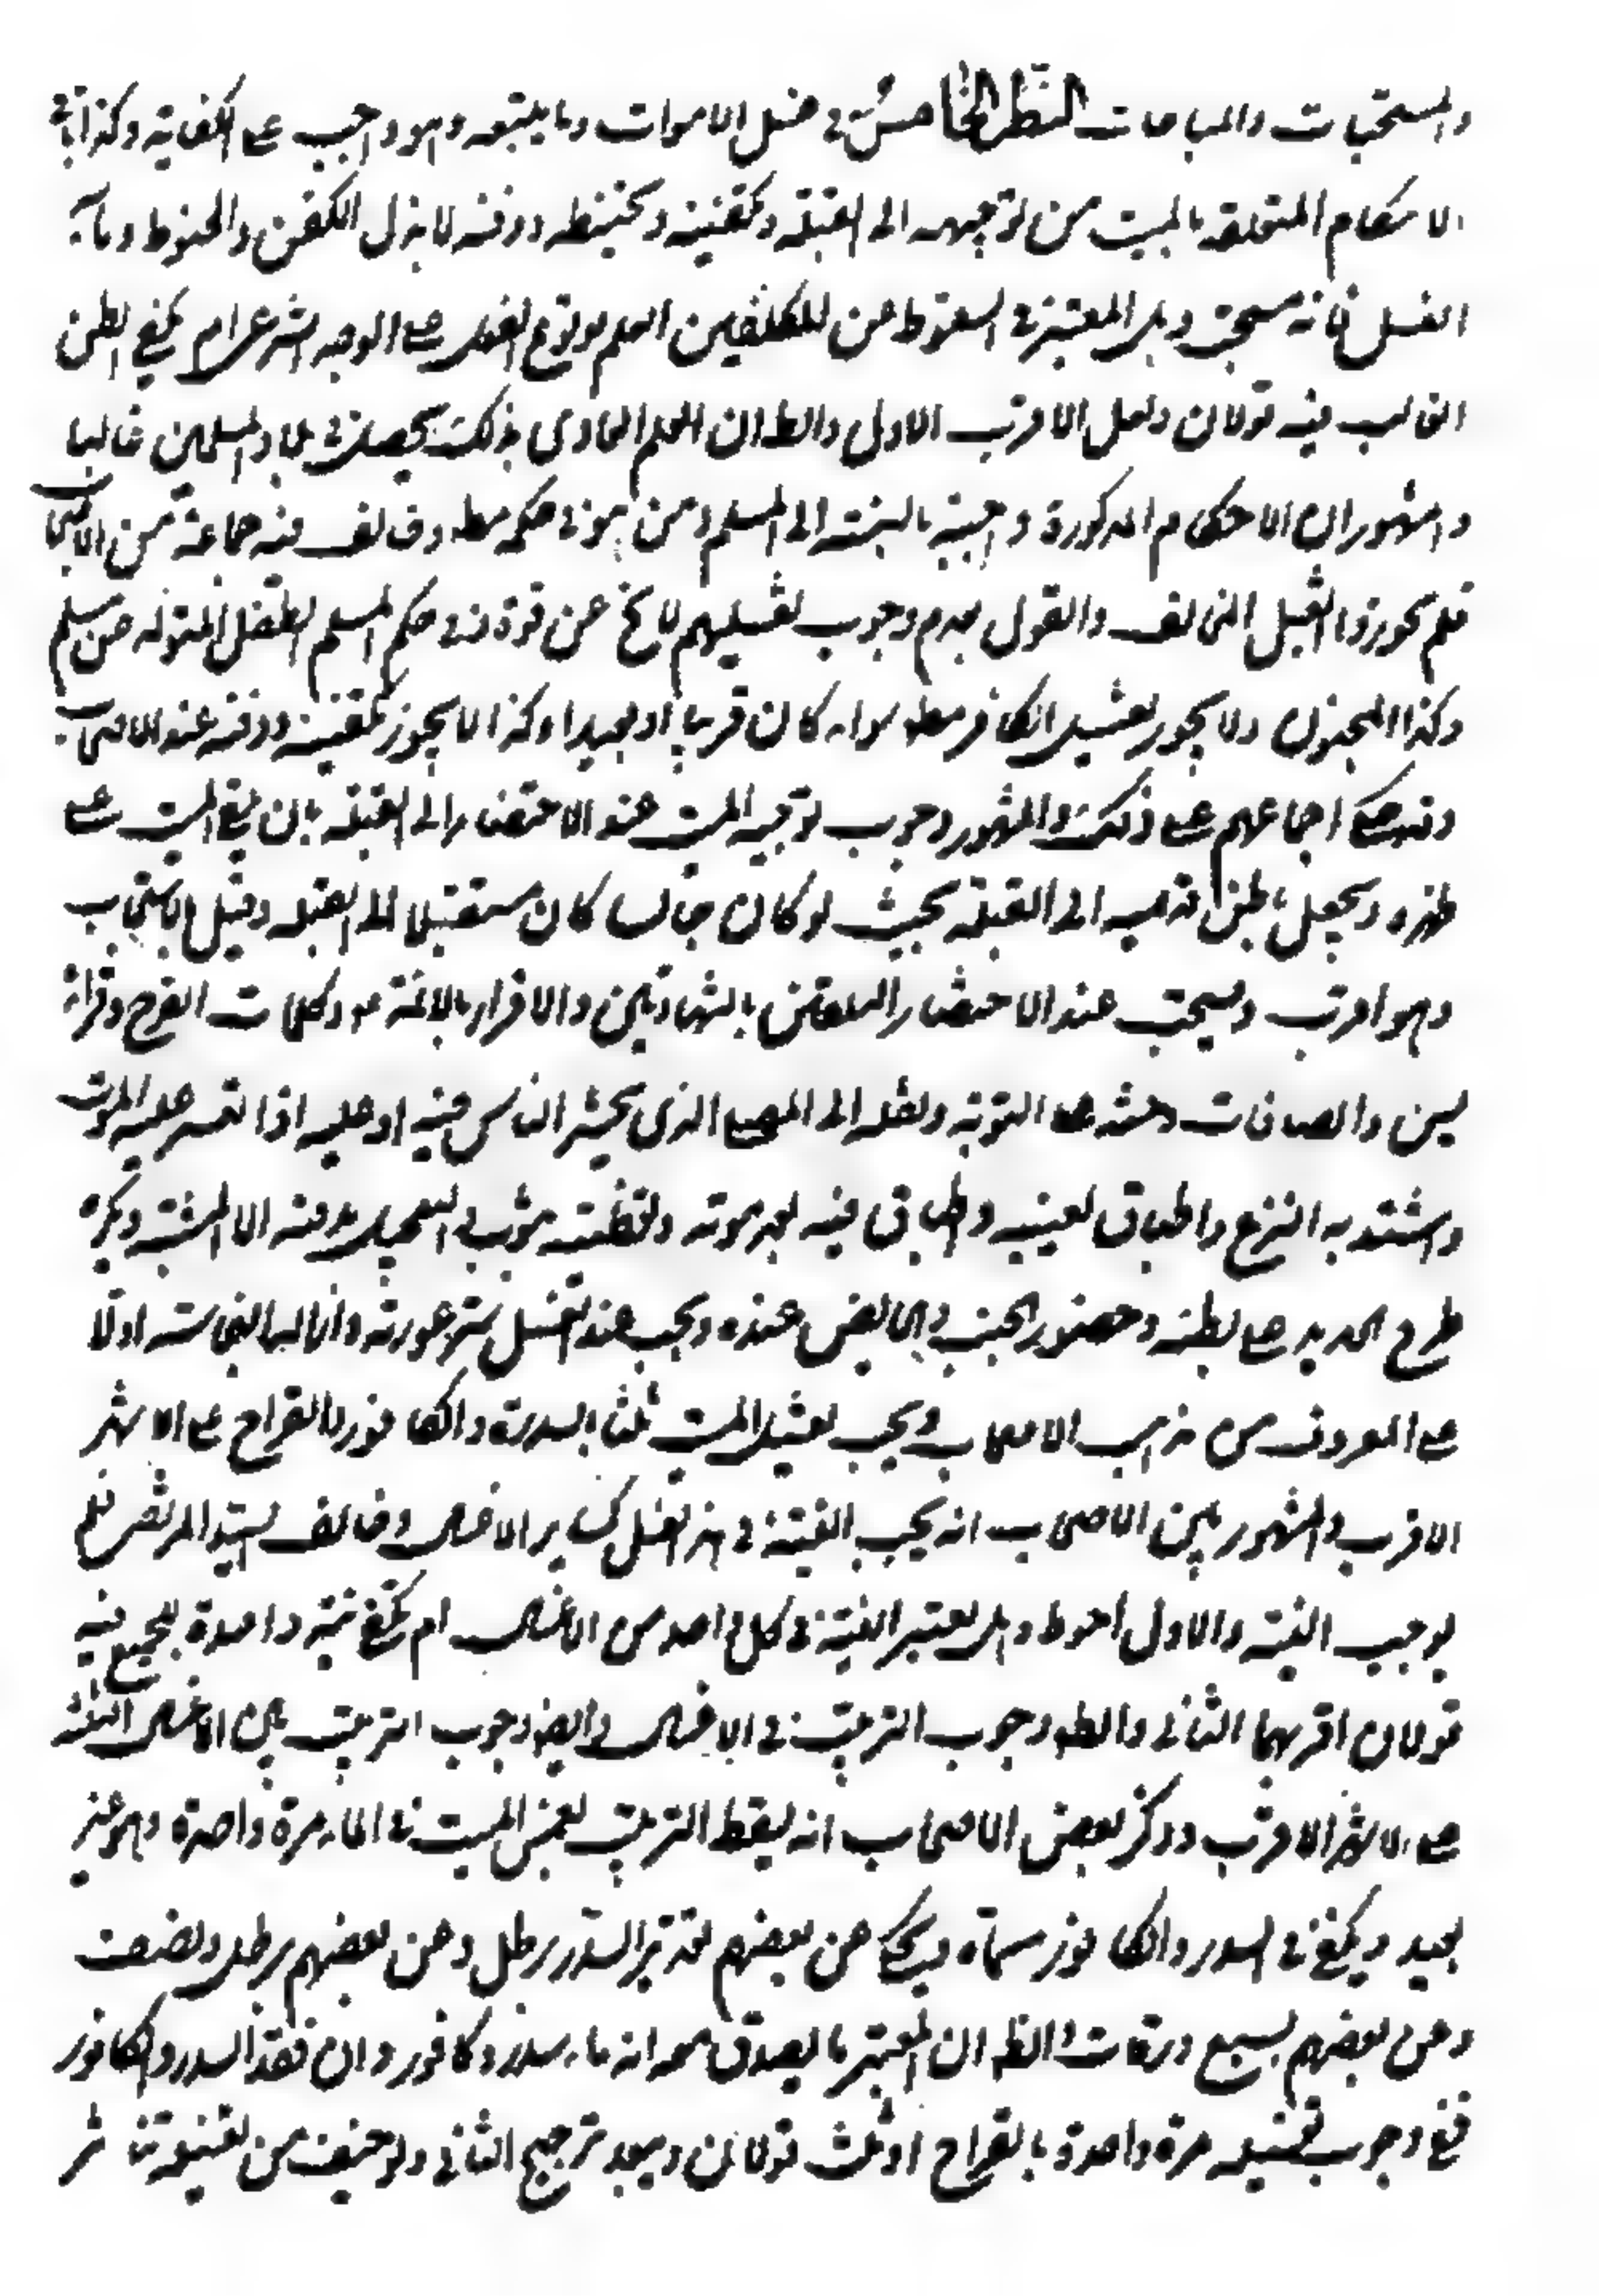 والمستحبات والمباحات النظر الخامس في غسل الاموات وما يتبعه وهو واجب على الكفاية وكذا باقي
الاحكام المتعلقة بالميت من توجيهه الى القبلة وتكفينه وتحنيطه ودفنه لا بذل الكفن والحنوط وماء
الغسل فانه مستحب وهل المعتبر في السقوط عن المكلفين العلم بوقوع الفعل على الوجه الشرعي ام يكفي الظن
الغالب فيه قولان ولعل الاقرب الاول والظ ان العلم العادي بذلك يحصل في بلاد المسلمين غالبا
والمشهور ان الاحكام المذكورة واجبة بالنسبة الى المسلم ومن هو في حكمه مط وخالف فيه جماعة من الاصحاب
فلم يجوزوا تغسيل المخالف والقول بعدم وجوب تغسيلهم لا يخ عن قوة وفي حكم المسلم الطفل المتولد من مسلم
وكذا المجنون ولا يجوز تغسيل الكافر مط سواء كان قريبا او بعيدا وكذا لا يجوز تكفينه ودفنه عند الاصحاب
ونقل اجماعهم على ذلك والمشهور وجوب توجيه الميت عند الاحتضار الى القبلة بان يلقى الميت على
ظهره ويجعل باطن قدميه الى القبلة بحيث لو كان جالسا كان مستقبلا الى القبلة وقيل بالاستحباب
وهو اقرب ويستحب عند الاحتضار التلقين بالشهادتين والاقرار بالائمة ع وكلمات الفرج وقراءة
يس والصافات وحثه على التوبة ونقله الى المصلى الذي يحشر الناس فيه او عليه اذا تعسر عليه الموت
واشتد به النزع واطباق لعينيه واطباق فيه بعد موته وتغطيته بثوب والتعجيل بدفنه الا المشتبه ويكره
طرح الحديد على بطنه وحضور الجنب والحائض عنده ويجب عند الغسل ستر عورته وازالة النجاسة اولا
على المعروف من مذهب الاصحاب ويجب تغسيل الميت ثلثا بالسدر والكافور والقراح على الاشهر
الاقرب والمشهور بين الاصحاب انه يجب النية في هذا الغسل كساير الاغسال وخالف السيد المرتضى فلم
يوجب النية والاول احوط وهل يعتبر النية في كل واحد من الاغسال ام يكفي نية واحدة للجميع فيه
قولان اقربهما الثاني والظ وجوب الترتيب في الاغسال وايضا وجوب الترتيب بين الاغسال الثلثة
على الاشهر الاقرب وذكر بعض الاصحاب انه يسقط الترتيب بغمس الميت في الماء مرة واحدة وهو غير
بعيد ويكفي في السدر والكافور مسماه ويحكى عن بعضهم تقدير السدر برطل وعن بعضهم برطل ونصف
وعن بعضهم بسبع ورقات والظ ان المعتبر ما يصدق معه انه ماء سدر وكافور وان فقد السدر والكافور
ففي وجوب تغسيله مرة واحدة بالقراح او ثلث قولان ويبعد ترجيح الثاني ولو خيف من تغسيله تناثر